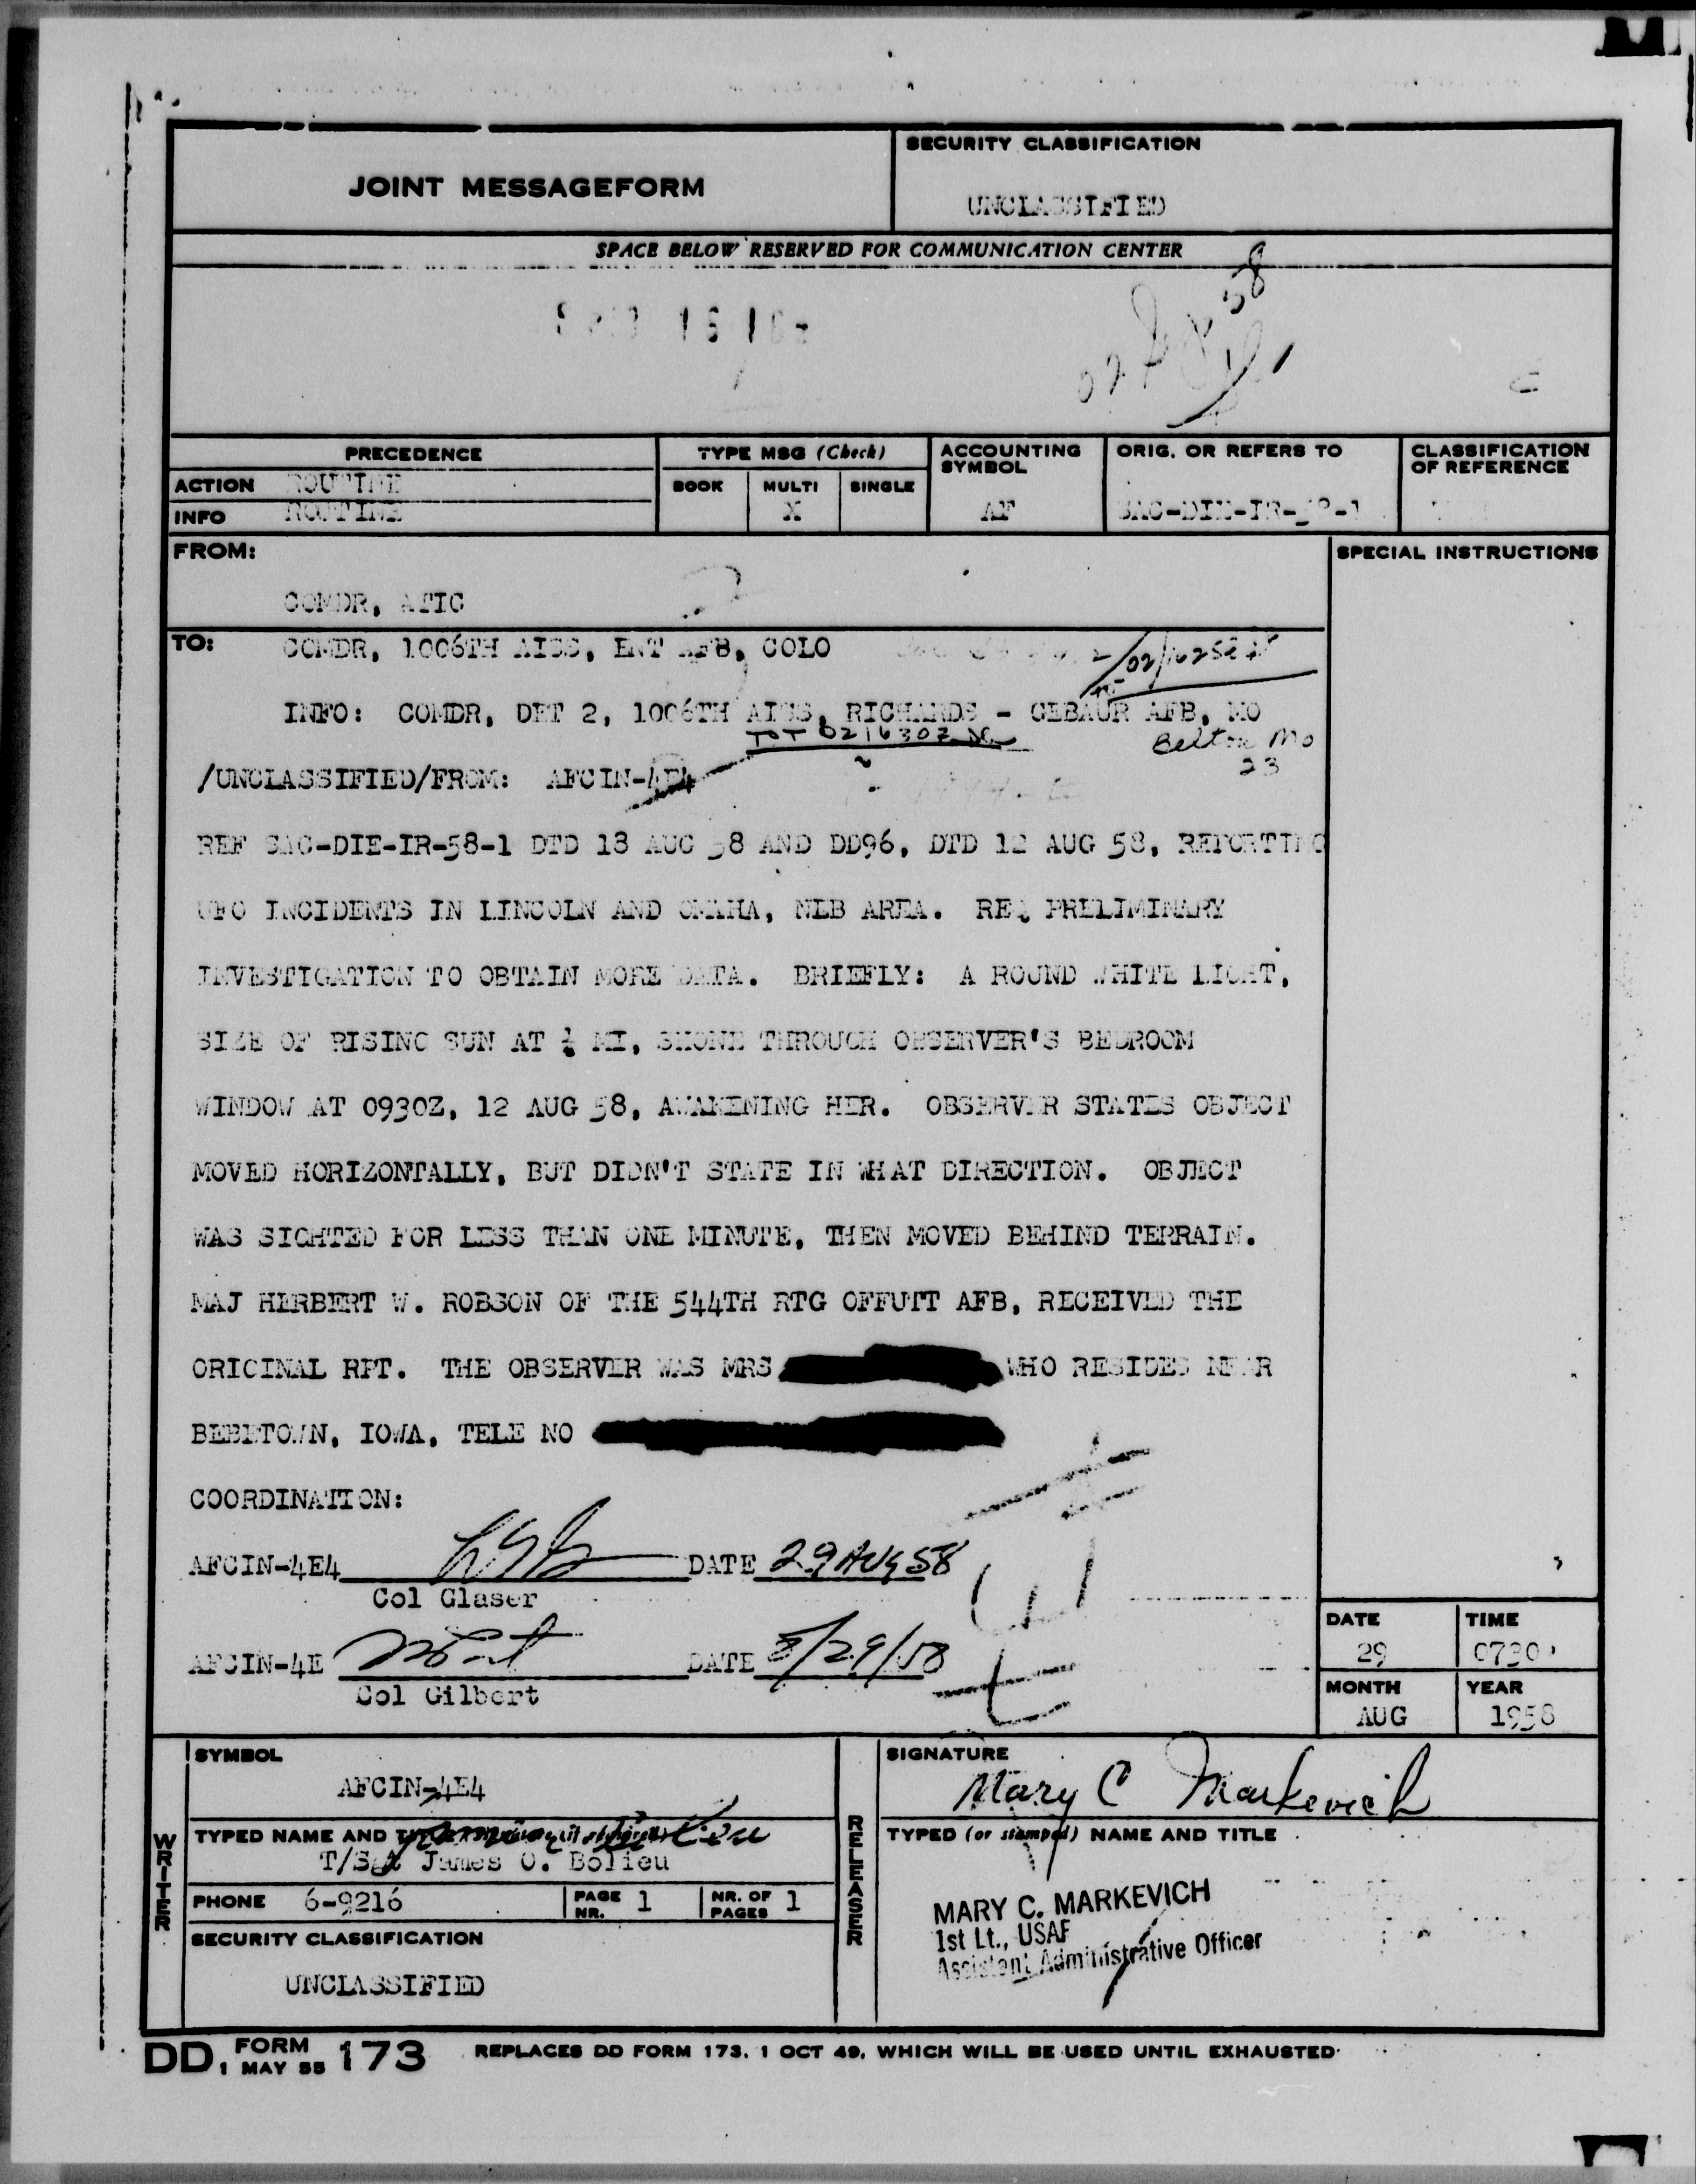 JOINT MESSAGEFORM
SECURITY CLASSIFICATION
UNCLASSIFIED
SPACE BELOW RESERVED FOR COMMUNICATION CENTER
58
PRECEDENCE
TYPE MSG (Check)
ACCOUNTING SYMBOL
ORIG. OR REFERS TO
CLASSIFICATION OF REFERENCE
ACTION ROUTINE
BOOK MULTI SINGLE
INFO ROUTINE
X
AF
SAC-DIE-IR-58-1
FROM:
SPECIAL INSTRUCTIONS
COMDR, ATIC
TO: COMDR, 1006TH AISS, ENT AFB, COLO
INFO: COMDR, DET 2, 1006TH AISS, RICHARDS - GEBAUR AFB, MO
TOT 021630Z
Belton Mo
23
/UNCLASSIFIED/FROM: AFCIN-4E4
REF SAC-DIE-IR-58-1 DTD 13 AUG 58 AND DD96, DTD 12 AUG 58, REPORTING
UFO INCIDENTS IN LINCOLN AND OMAHA, NEB AREA. REQ PRELIMINARY
INVESTIGATION TO OBTAIN MORE DATA. BRIEFLY: A ROUND WHITE LIGHT,
SIZE OF RISING SUN AT MI, SHONE THROUGH OBSERVER'S BEDROOM
WINDOW AT 0930Z, 12 AUG 58, AWAKENING HER. OBSERVER STATES OBJECT
MOVED HORIZONTALLY, BUT DIDN'T STATE IN WHAT DIRECTION. OBJECT
WAS SIGHTED FOR LESS THAN ONE MINUTE, THEN MOVED BEHIND TERRAIN.
MAJ HERBERT W. ROBSON OF THE 544TH RTG OFFUTT AFB, RECEIVED THE
ORIGINAL RPT. THE OBSERVER WAS MRS WHO RESIDES NEAR
BEBETOWN, IOWA, TELE NO
COORDINATION:
AFCIN-4E4 DATE 29 AUG 58
Col Glaser
AFCIN-4E DATE 8/29/58
Col Gilbert
DATE
TIME
29
0730
MONTH
YEAR
AUG
1958
WRITER
SYMBOL
AFCIN-4E4
TYPED NAME AND
T/Sgt James O. Bolieu
PHONE 6-9216
PAGE NR. 1
NR. OF PAGES 1
SECURITY CLASSIFICATION
UNCLASSIFIED
RELEASER
SIGNATURE
Mary C Markevich
TYPED (or stamped) NAME AND TITLE
MARY C. MARKEVICH
1st Lt., USAF
Assistant Administrative Officer
DD FORM 1 MAY 55 173
REPLACES DD FORM 173, 1 OCT 49, WHICH WILL BE USED UNTIL EXHAUSTED